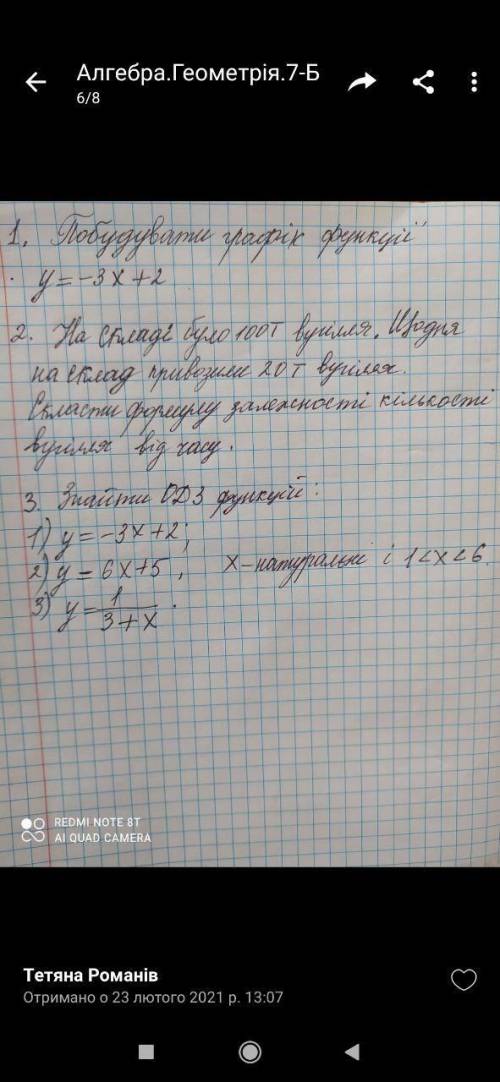 Алгебра.Геометрія.7-Б
6/8
1. Побудувати графік функції
y = -3x + 2
2. На складі було 100т вугілля. Щодня
на склад привозили 20т вугілля.
Скласти формулу залежності кількості
вугілля від часу.
3. Знайти ОДЗ функції:
1) y = -3x + 2;
2) y = 6x + 5, x - натуральні і 1 < x < 6.
3) y = 1/(3 + x).
REDMI NOTE 8T
AI QUAD CAMERA
Тетяна Романів
Отримано о 23 лютого 2021 р. 13:07